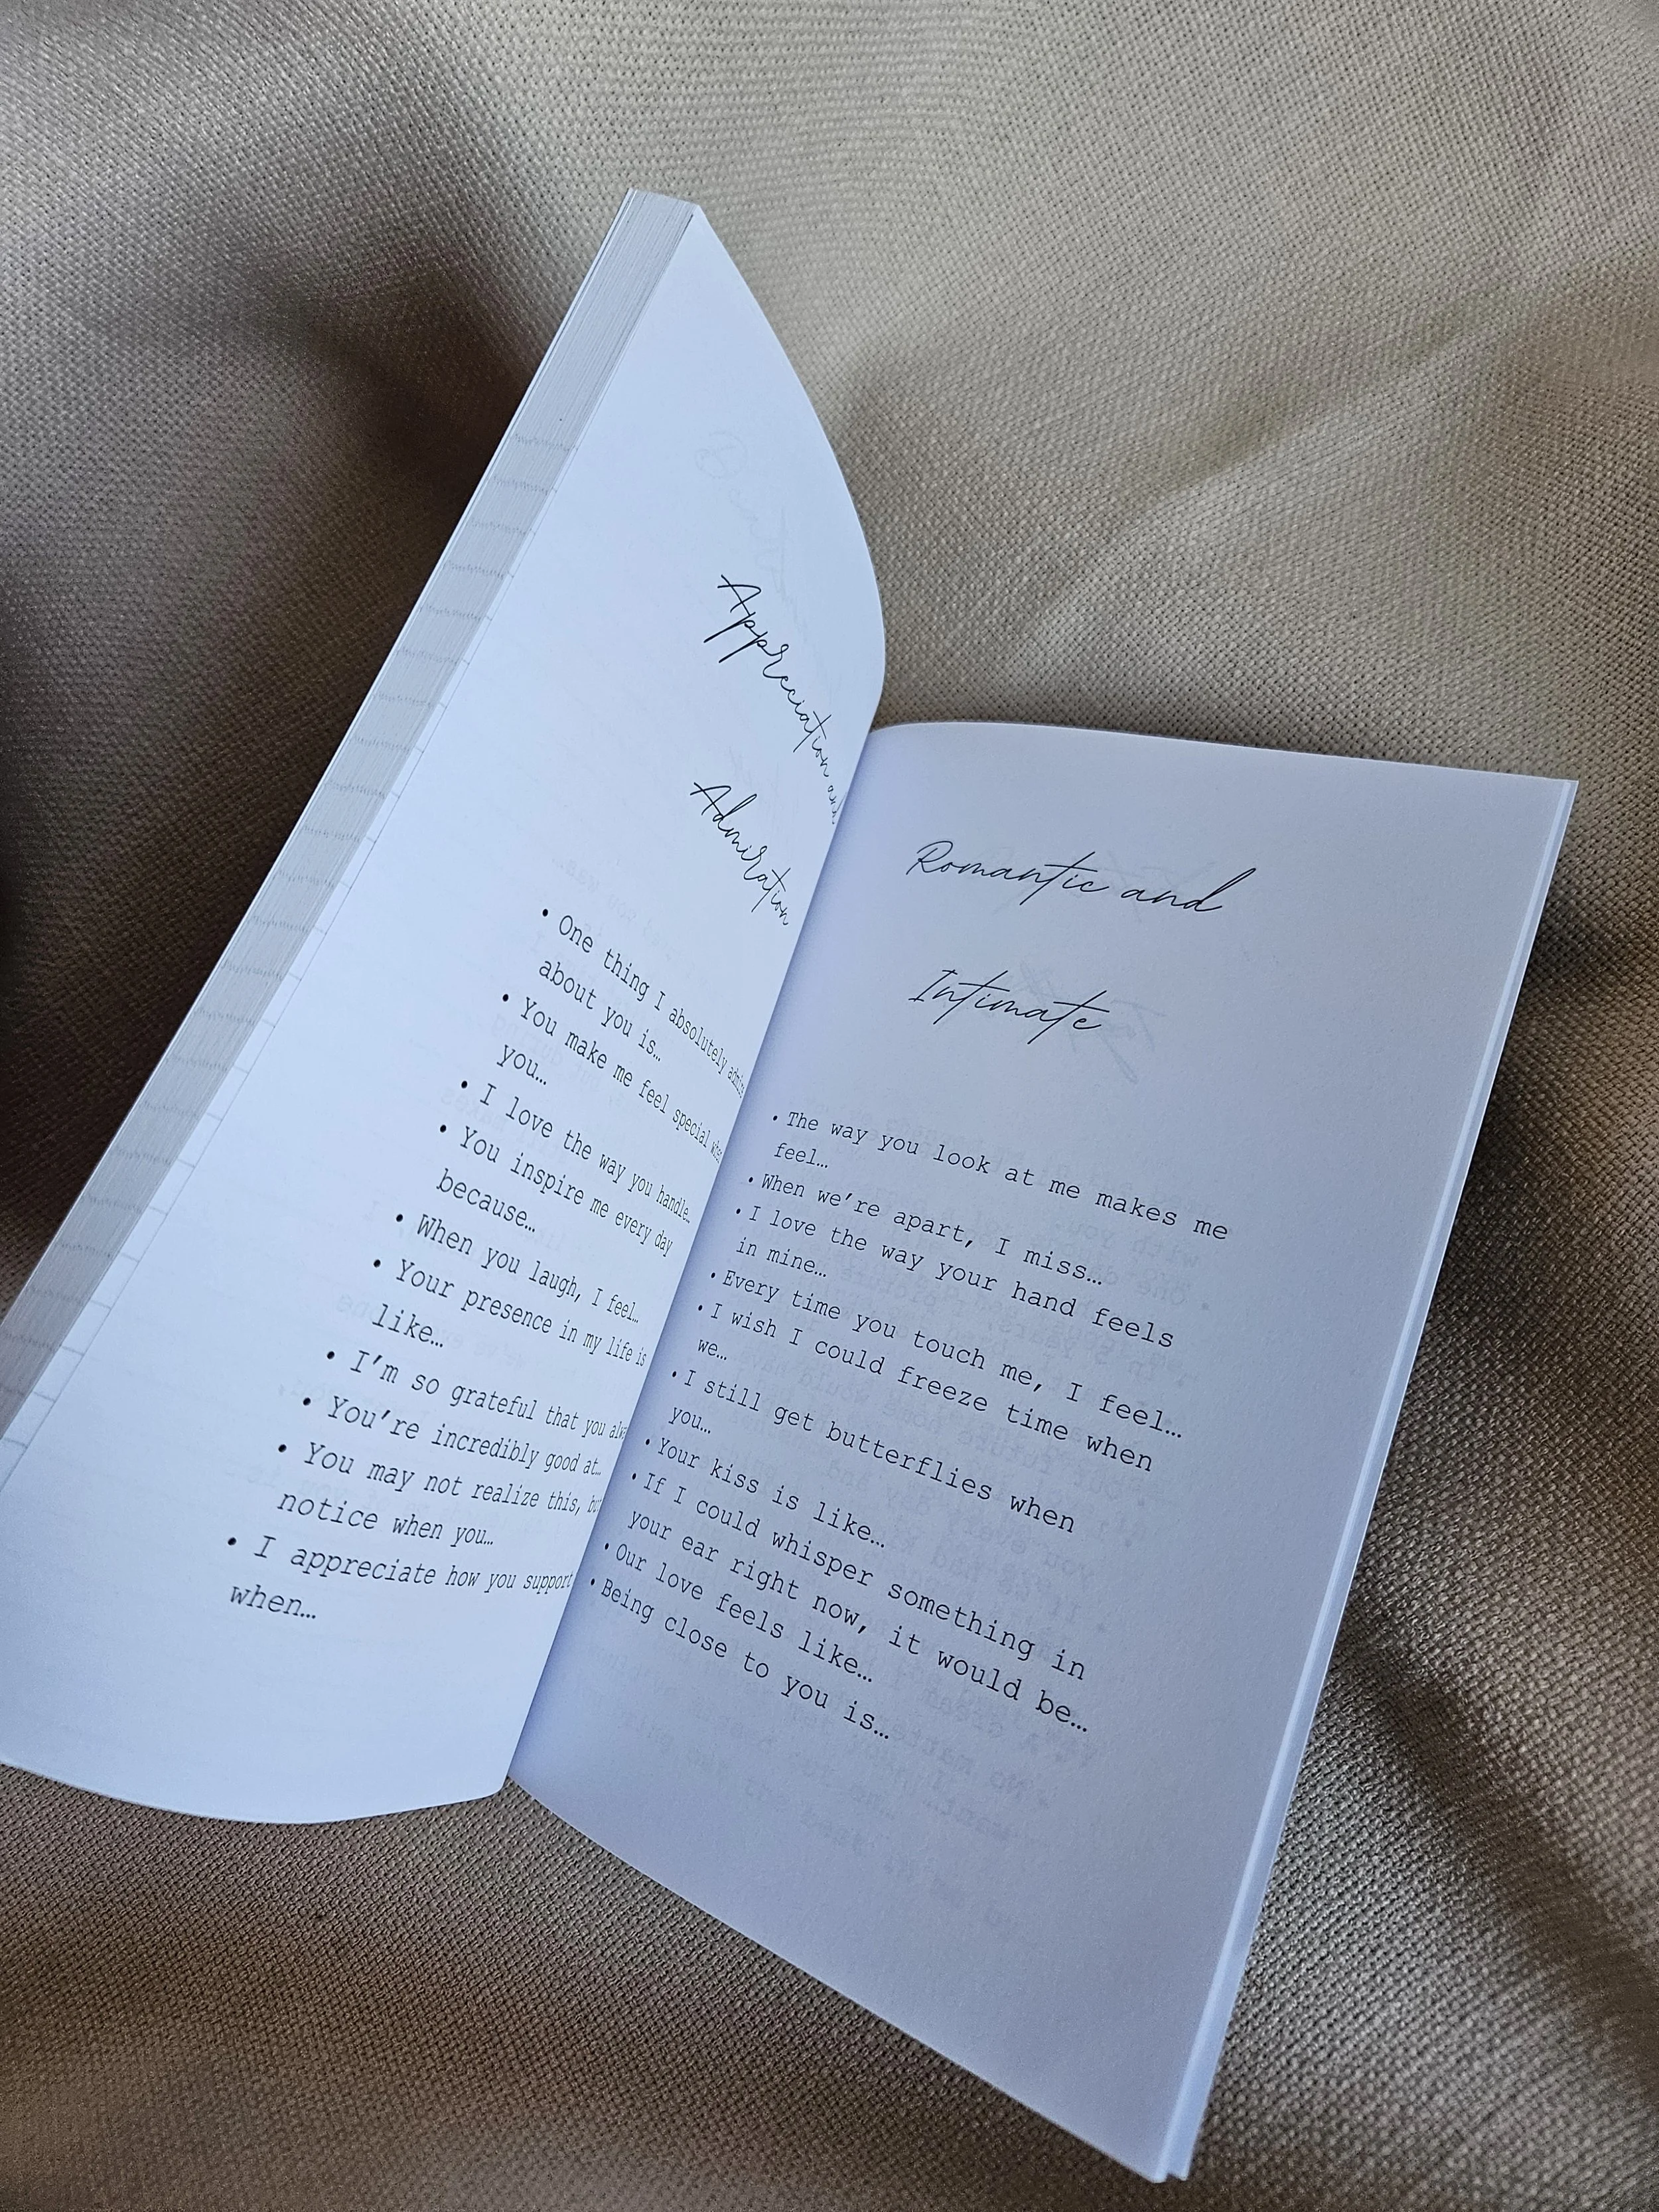 Appreciation and
Admiration
• One thing I absolutely admire
about you is…
• You make me feel special when
you…
• I love the way you handle…
• You inspire me every day
because…
• When you laugh, I feel…
• Your presence in my life is
like…
• I'm so grateful that you
• You're incredibly good at…
• You may not realize this,
notice when you…
• I appreciate how you support
when…
Romantic and
Intimate
• The way you look at me makes me
feel…
• When we're apart, I miss…
• I love the way your hand feels
in mine…
• Every time you touch me, I feel…
• I wish I could freeze time when
we…
• I still get butterflies when
you…
• Your kiss is like…
• If I could whisper something in
your ear right now, it would be…
• Our love feels like…
• Being close to you is…